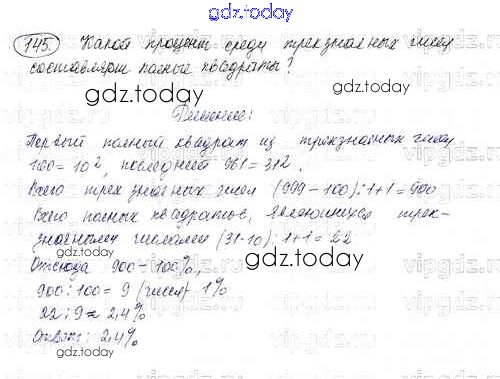 gdz.today
145. Какой процент среди трехзначных чисел
составляют полные квадраты?
gdz.today
Решение:
Первый полный квадрат из трехзначных чисел
100 = 10², последний 961 = 31².
Всего трехзначных чисел (999 - 100) : 1 + 1 = 900
Всего полных квадратов, являющихся трех-
значными числами (31-10) : 1 + 1 = 22
Отсюда 900 - 100%,
gdz.today
900 : 100 = 9 (чисел) 1%
22 : 9 ≈ 2,4%
Ответ: 2,4%
gdz.today